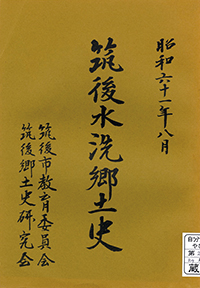 昭和六十一年八月
筑後水洗郷土史
筑後市教育委員会
筑後郷土史研究会
蔵